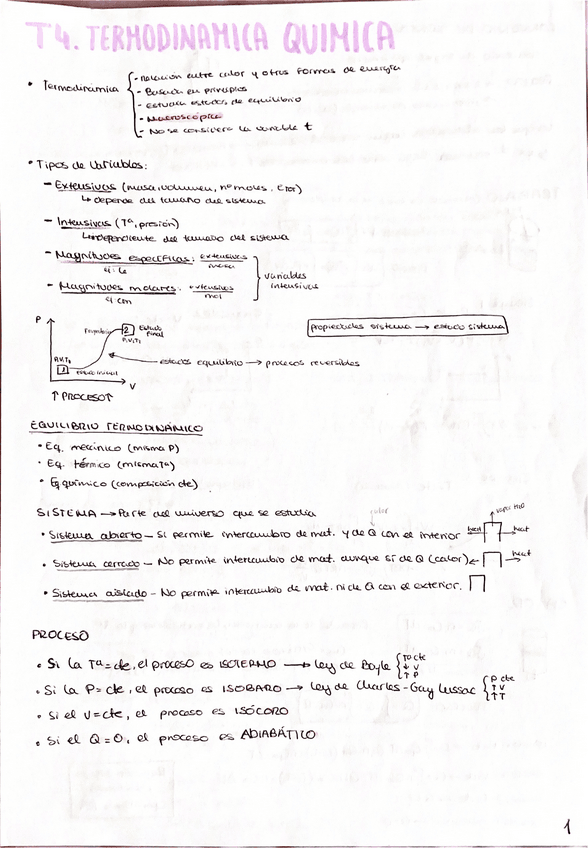 T4. TERMODINAMICA QUIMICA
• Termodinamica
- relación entre calor y otras formas de energía
- Basada en principios
- estudia estados de equilibrio
- Macroscópica
- No se considera la variable t
• Tipos de variables:
- Extensivas (masa, volumen, nº moles, ETOT)
↳ depende del tamaño del sistema
- Intensivas (Tª, presión)
↳ independiente del tamaño del sistema
- Magnitudes específicas: extensivas / masa
- Magnitudes molares: extensivas / mol
variables intensivas
P
2 Estado final
P2V2T2
P1V1T1
1 Estado inicial
V
estados equilibrio → procesos reversibles
propiedades sistema → estado sistema
↑ PROCESO ↑
EQUILIBRIO TERMODINÁMICO
• Eq. mecánico (misma P)
• Eq. térmico (misma Tª)
• Eq químico (composición cte)
SISTEMA → Parte del universo que se estudia
calor
vapor H2O
• Sistema abierto - Si permite intercambio de mat. y de Q con el interior
heat
heat
• Sistema cerrado - No permite intercambio de mat. aunque sí de Q (calor)
heat
• Sistema aislado - No permite intercambio de mat. ni de Q con el exterior.
PROCESO
• Si la Tª = cte, el proceso es ISOTERMO → ley de Boyle { Tª cte ↓ V ↑ P
• Si la P = cte, el proceso es ISOBARO → ley de Charles-Gay Lussac { P cte ↑ V ↑ T
• Si el V = cte, el proceso es ISÓCORO
• Si el Q = 0, el proceso es ADIABÁTICO
1